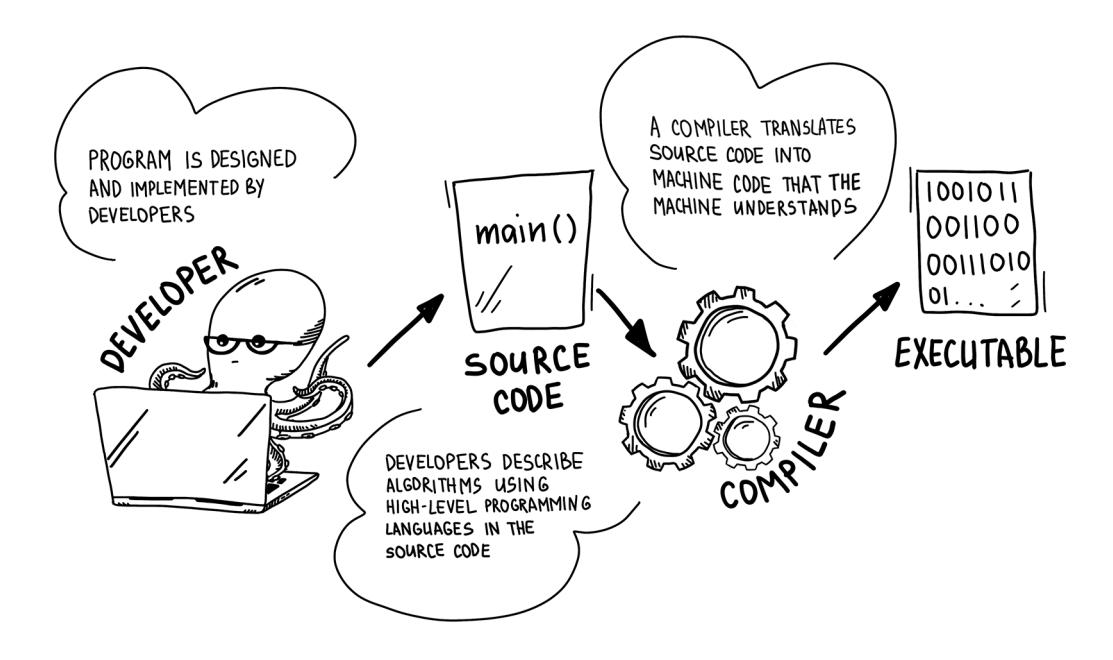 PROGRAM IS DESIGNED
AND IMPLEMENTED BY
DEVELOPERS
DEVELOPER
main()
SOURCE
CODE
DEVELOPERS DESCRIBE
ALGORITHMS USING
HIGH-LEVEL PROGRAMMING
LANGUAGES IN THE
SOURCE CODE
A COMPILER TRANSLATES
SOURCE CODE INTO
MACHINE CODE THAT THE
MACHINE UNDERSTANDS
COMPILER
1001011
001100
00111010
01...
EXECUTABLE